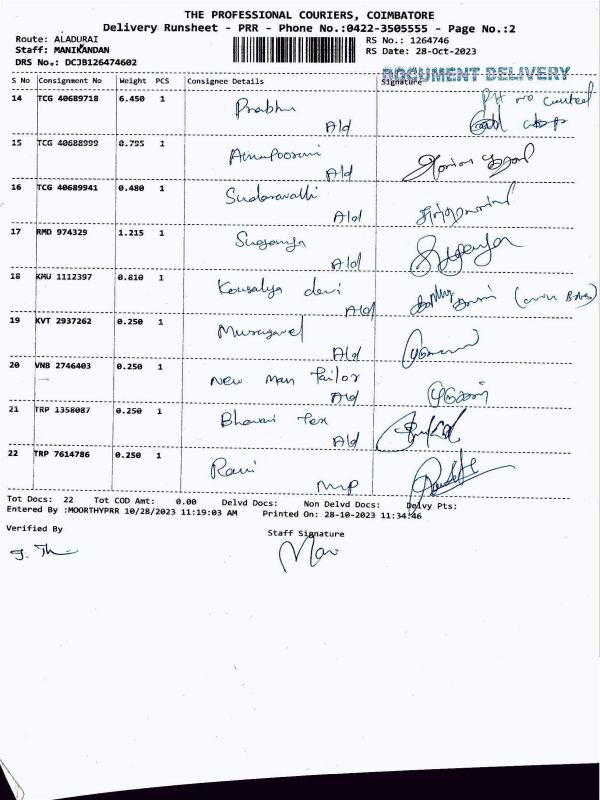 THE PROFESSIONAL COURIERS, COIMBATORE
Delivery Runsheet - PRR - Phone No.:0422-3505555 - Page No.:2
Route: ALADURAI RS No.: 1264746
Staff: MANIKANDAN RS Date: 28-Oct-2023
DRS No.: DCJB126474602
DOCUMENT DELIVERY
S No Consignment No Weight PCS Consignee Details Signature
14 TCG 40689718 6.450 1 Prabhu Ald PH no
15 TCG 40688999 0.795 1 Ald
16 TCG 40689941 0.480 1 Ald
17 RMD 974329 1.215 1 Suganya Ald
18 KMU 1112397 0.810 1 Kousalya devi Ald
19 KVT 2937262 0.250 1 Murugavel Ald
20 VNB 2746403 0.250 1 New Man Tailor Ald
21 TRP 1358087 0.250 1 Bhavani Tex Ald
22 TRP 7614786 0.250 1 Ravi MP
Tot Docs: 22 Tot COD Amt: 0.00 Delvd Docs: Non Delvd Docs: Delvy Pts:
Entered By :MOORTHYPRR 10/28/2023 11:19:03 AM Printed On: 28-10-2023 11:34:46
Verified By Staff Signature